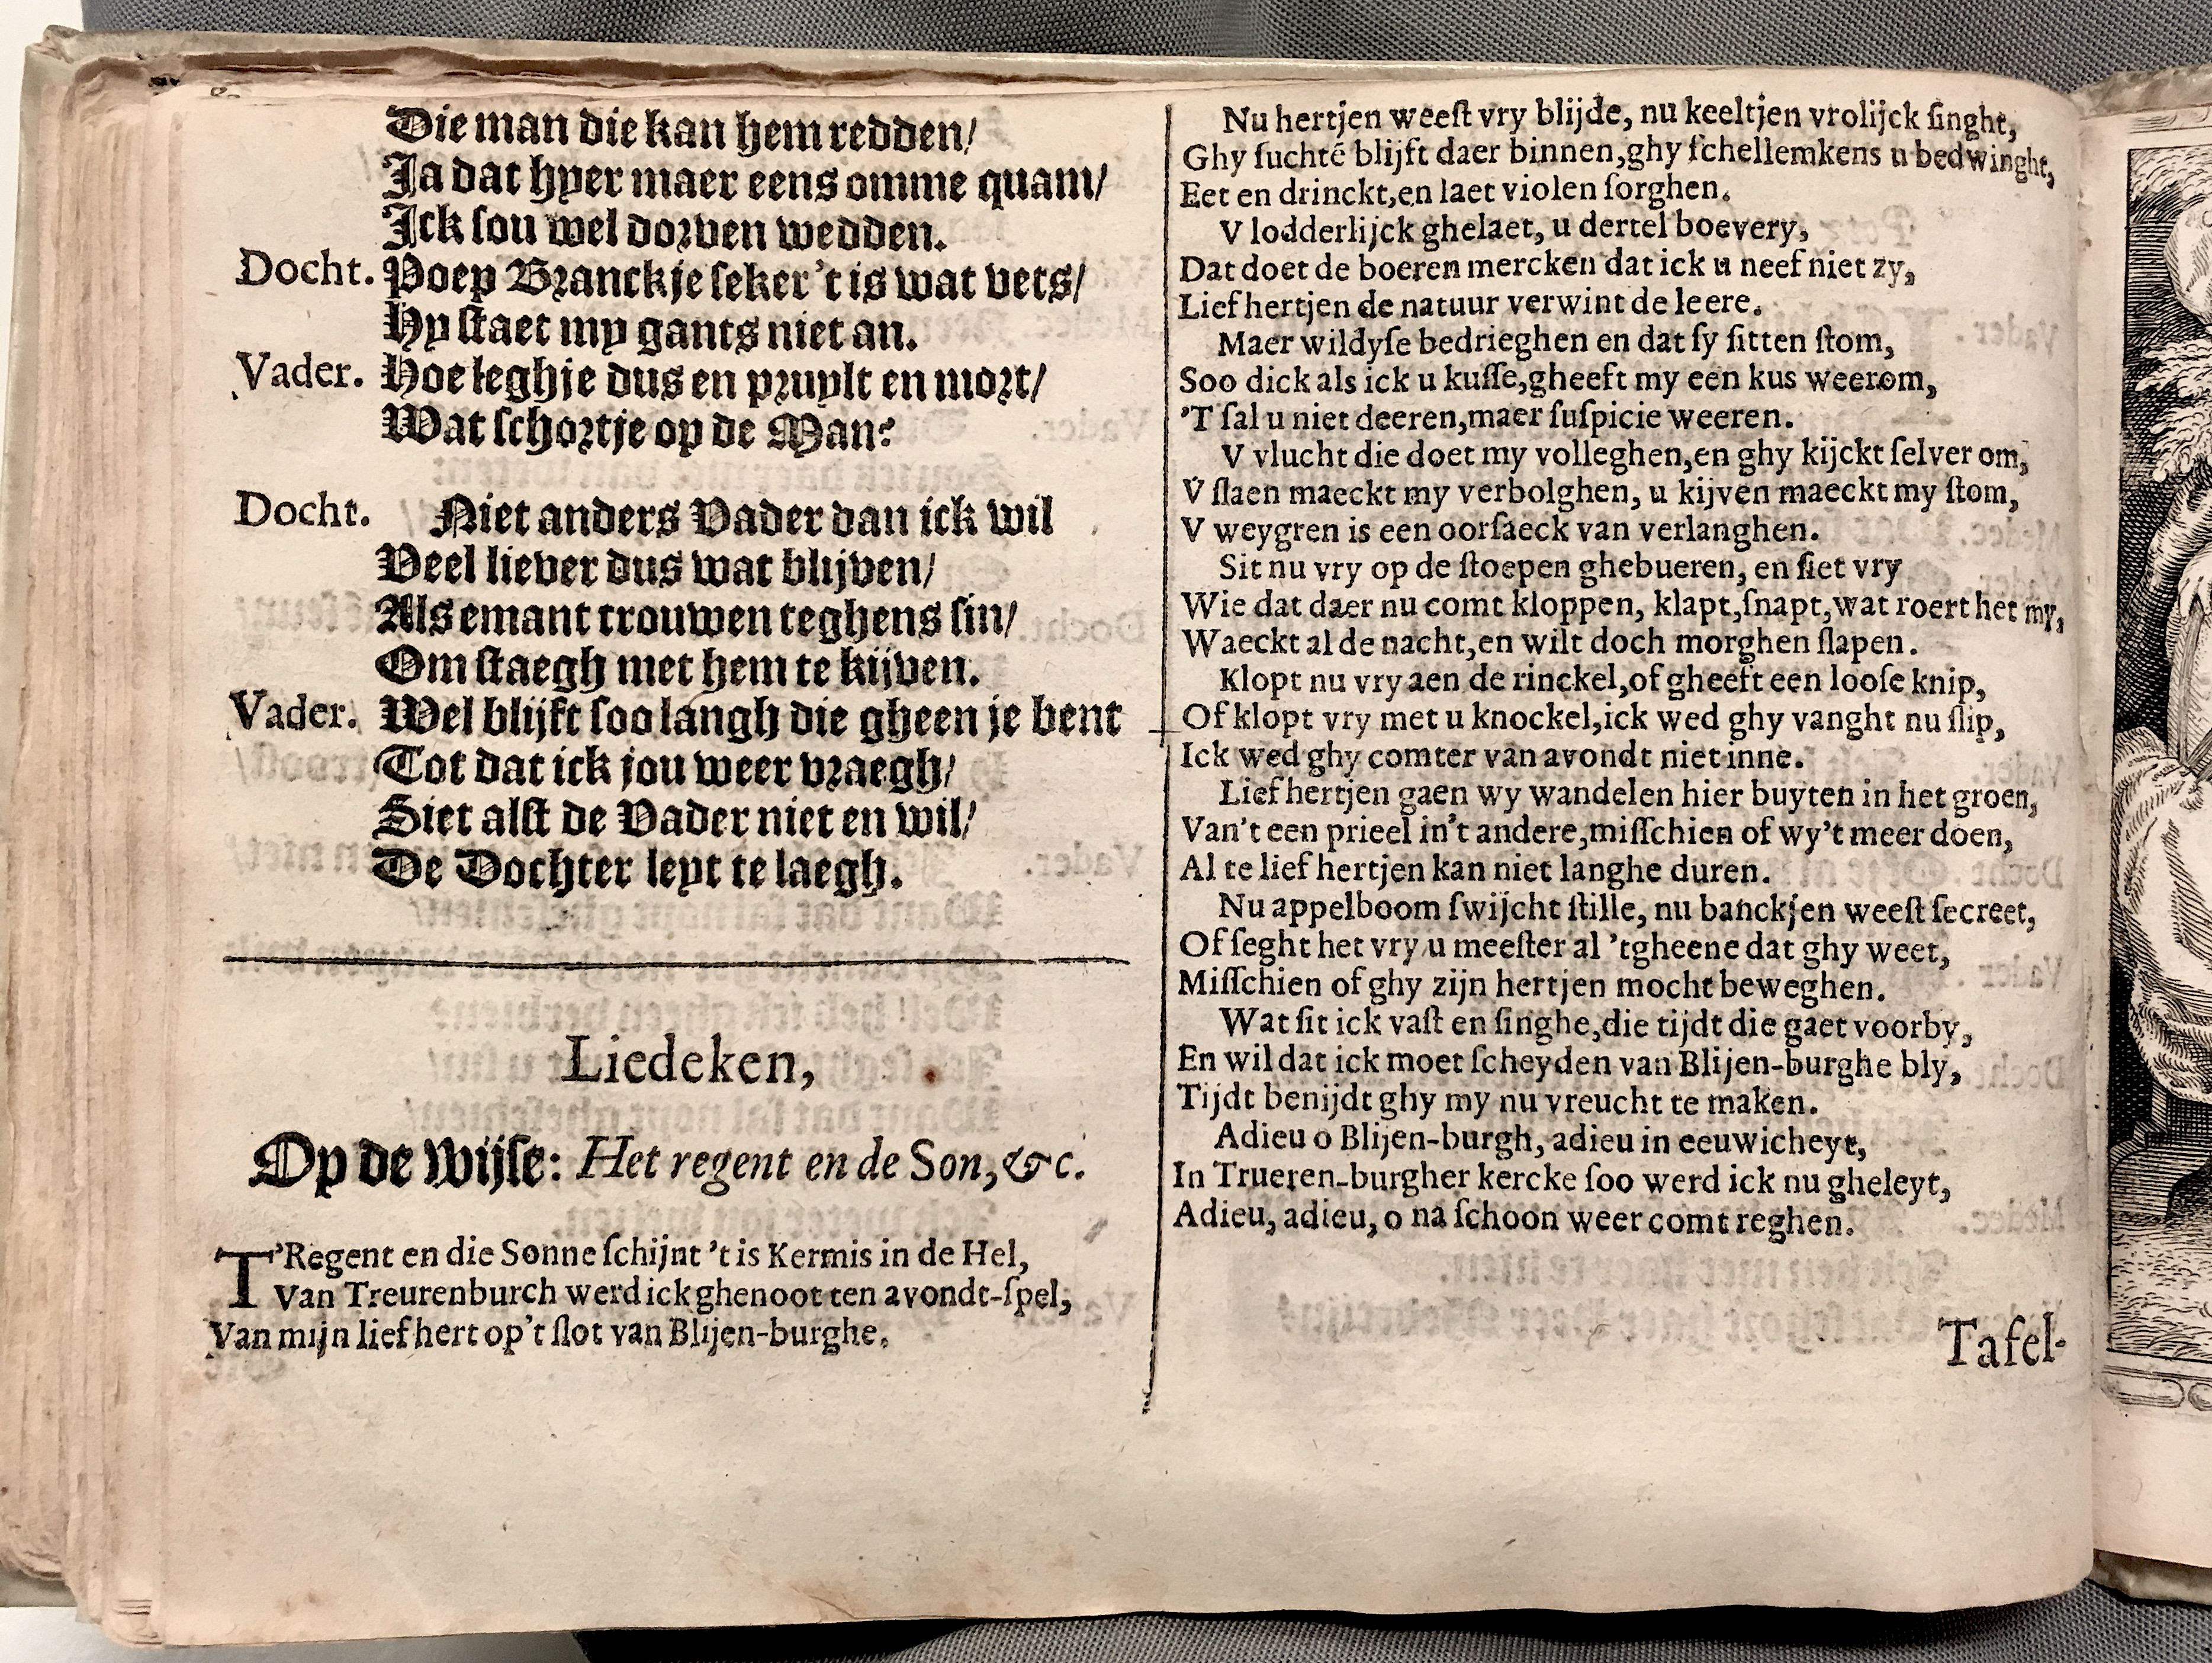 Die man die kan hem redden/
Ja dat hyer maer eens omme quam/
Ick ſou wel dorven wedden.
Docht. Poep Branckje ſeker 't is wat vets/
Hy ſtaet my gants niet an.
Vader. Hoe leghje dus en pruylt en mort/
Wat ſchortje op de Man?
Docht. Niet anders Vader dan ick wil
Veel liever dus wat blijven/
Als emant trouwen teghens ſin/
Om ſtaegh met hem te kijven.
Vader. Wel blijft ſoo langh die gheen je bent
Tot dat ick jou weer vraegh/
Siet alſt de Vader niet en wil/
De Dochter leyt te laegh.
Liedeken,
Op de wijſe: Het regent en de Son, &c.
T'Regent en die Sonne ſchijnt 't is Kermis in de Hel,
Van Treurenburch werd ick ghenoot ten avondt-ſpel,
Van mijn lief hert op't ſlot van Blijen-burghe.
Nu hertjen weeſt vry blijde, nu keeltjen vrolijck ſinght,
Ghy ſuchtē blijft daer binnen, ghy ſchellemkens u bedwinght,
Eet en drinckt, en laet violen ſorghen.
V lodderlijck ghelaet, u dertel boevery,
Dat doet de boeren mercken dat ick u neef niet zy,
Lief hertjen de natuur verwint de leere.
Maer wildyſe bedrieghen en dat ſy ſitten ſtom,
Soo dick als ick u kuſſe, gheeft my een kus weerom,
'T ſal u niet deeren, maer ſuſpicie weeren.
V vlucht die doet my volleghen, en ghy kijckt ſelver om,
V ſlaen maeckt my verbolghen, u kijven maeckt my ſtom,
V weygren is een oorſaeck van verlanghen.
Sit nu vry op de ſtoepen ghebueren, en ſiet vry
Wie dat daer nu comt kloppen, klapt, ſnapt, wat roert het my,
Waeckt al de nacht, en wilt doch morghen ſlapen.
Klopt nu vry aen de rinckel, of gheeft een looſe knip,
Of klopt vry met u knockel, ick wed ghy vanght nu ſlip,
Ick wed ghy comter van avondt niet inne.
Lief hertjen gaen wy wandelen hier buyten in het groen,
Van't een prieel in't andere, miſſchien of wy't meer doen,
Al te lief hertjen kan niet langhe duren.
Nu appelboom ſwijcht ſtille, nu banckjen weeſt ſecreet,
Of ſeght het vry u meeſter al 'tgheene dat ghy weet,
Miſſchien of ghy zijn hertjen mocht beweghen.
Wat ſit ick vaſt en ſinghe, die tijdt die gaet voorby,
En wil dat ick moet ſcheyden van Blijen-burghe bly,
Tijdt benijdt ghy my nu vreucht te maken.
Adieu o Blijen-burgh, adieu in eeuwicheyt,
In Trueren-burgher kercke ſoo werd ick nu gheleyt,
Adieu, adieu, o na ſchoon weer comt reghen.
Tafel-